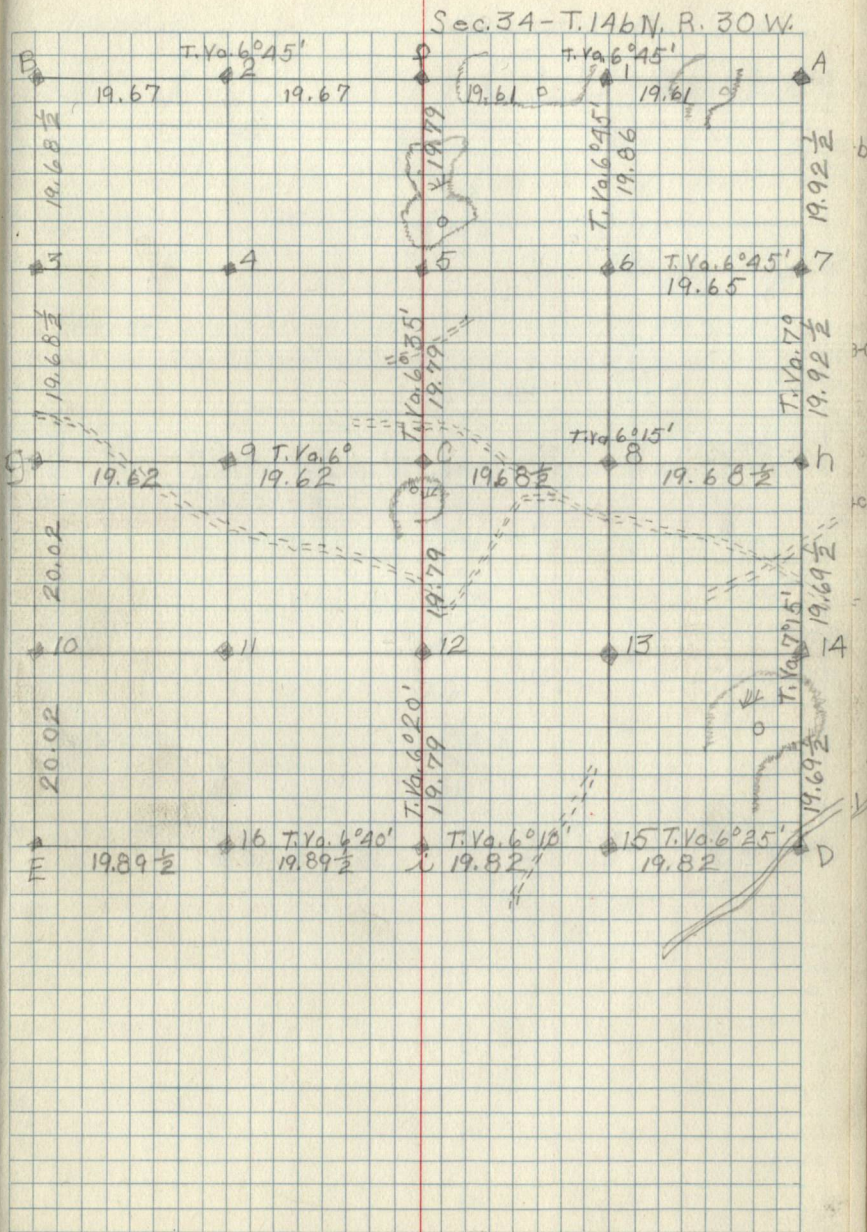 Sec. 34 - T. 146 N. R. 30 W.
T. Va. 6°45' T. Va. 6°45'
B 2 1 A
19.67 19.67 19.61 19.61
19.68 ½ 19.79 T. Va. 6°45' 19.86 19.92 ½
3 4 5 6 T. Va. 6°45' 7
19.65
19.68 ½ T. Va. 6°35' 19.79 T. Va. 7° 19.92 ½
T. Va 6°15'
g 9 T. Va. 6° C 8 h
19.62 19.62 19.68 ½ 19.68 ½
20.02 19.79 19.69 ½
10 11 12 13 T. Va. 7°15' 14
20.02 T. Va. 6°20' 19.79 19.69 ½
16 T. Va. 6°40' T. Va. 6°10' 15 T. Va. 6°25'
E 19.89 ½ 19.89 ½ i 19.82 19.82 D